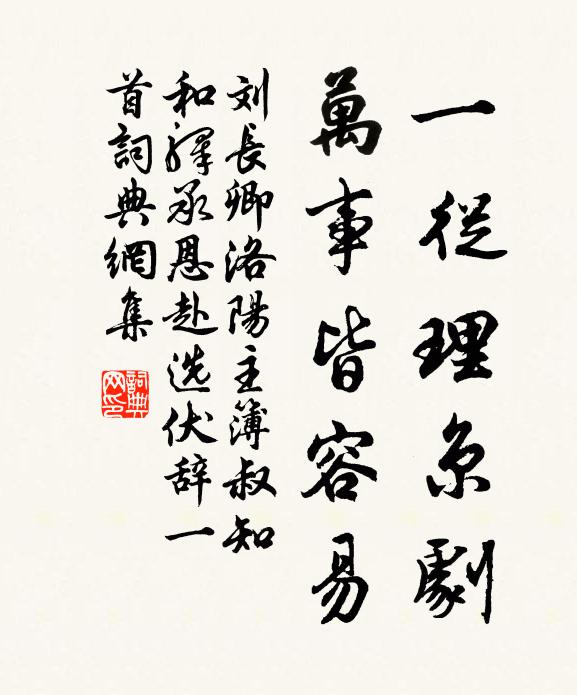 一從理京劇
萬事皆容易
刘長卿洛陽主簿叔知
和驛承恩赴选伏辞一
首詞典網集
詞典
网印